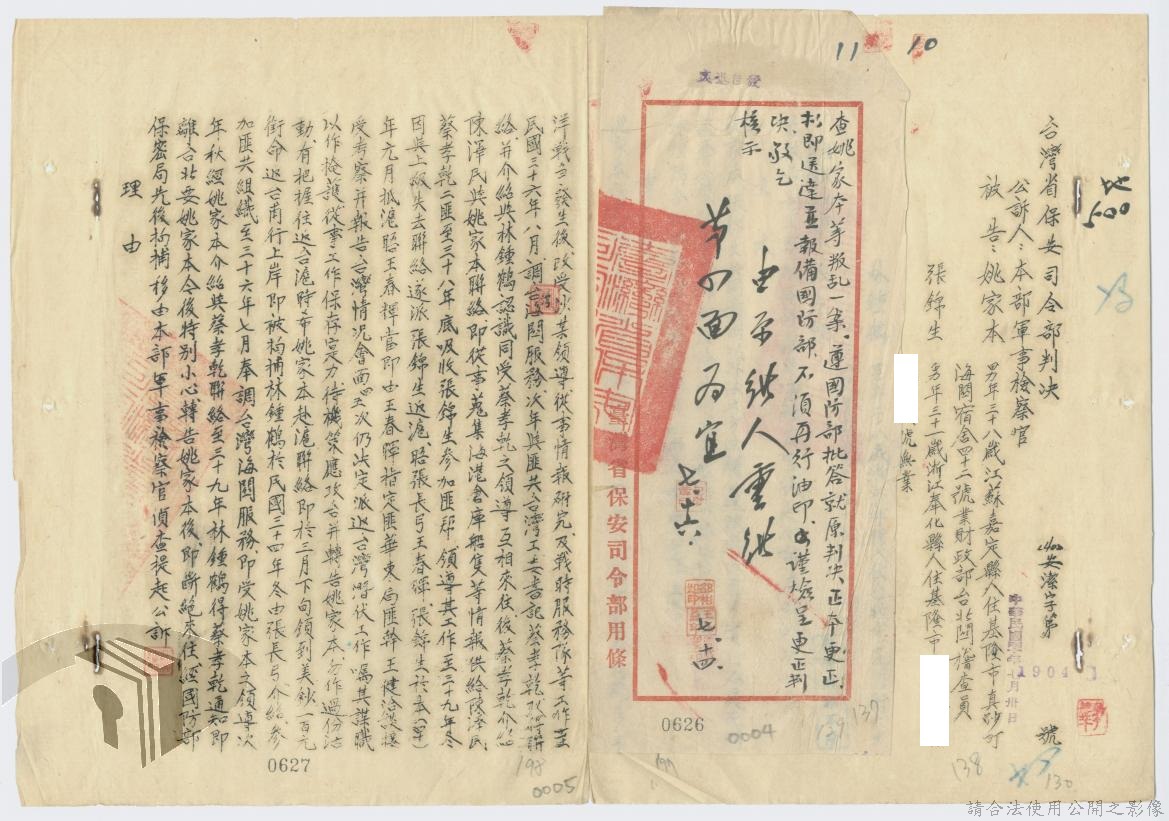 台灣省保安司令部判決
安潔字第 1904 號
公訴人：本部軍事檢察官
被告：姚家本 男年三十八歲江蘇嘉定縣人住基隆市真砂町
海關宿舍四十二號業財政部台北關稽查員
張錦生 男年三十一歲浙江奉化縣人住基隆市
號無業
11
10
查姚家本等叛乱一案，遵國防部批答就原判决正本更正
即送達並報備國防部，不須再行油印，謹檢呈更正判
決，敬乞
核示
七、十四
七、十六
台灣省保安司令部用條
0626
0004
137
139
138
130
197
洋戰爭發生後改受以某領導從事情報研究及戰時服務隊等工作至
民國三十六年八月調台海關服務次年與匪共台灣工委書記蔡孝乾取得聯
絡并介紹與林鍾鶴認識同受蔡孝乾之領導互相來往後蔡孝乾介紹
陳澤民與姚家本聯絡即從事蒐集海港倉庫船隻等情報供給陳澤民
蔡孝乾二匪至三十八年底吸收張錦生參加匪幫領導其工作至三十九年冬
因與上級失去聯絡遂派張錦生返滬晤張長弓王春暉張錦生於本（四十）
年元月抵滬晤王春輝當即由王春暉指定匪華東局匪幹王健洽談接
受考察并報告台灣情況會面四五次仍決定派返台灣潛伏工作囑其謀職
以作掩護從事工作保存實力待機策應攻台并轉告姚家本勿作過份活
動有把握住返台滬時希姚家本赴滬聯絡即於三月下旬領到美鈔一百元
銜命返台甫行上岸即被拘捕林鍾鶴於民國三十四年冬由張長弓介紹參
加匪共組織至三十六年七月奉調台灣海關服務即受姚家本之領導次
年秋經姚家本介紹與蔡孝乾聯絡至三十九年林鍾鶴得蔡孝乾通知即
離台北要姚家本今後特別小心轉告姚家本後即斷絕來往經國防部
保密局先後拘捕移由本部軍事檢察官偵查提起公訴
理由
0627
198
0005
請合法使用公開之影像